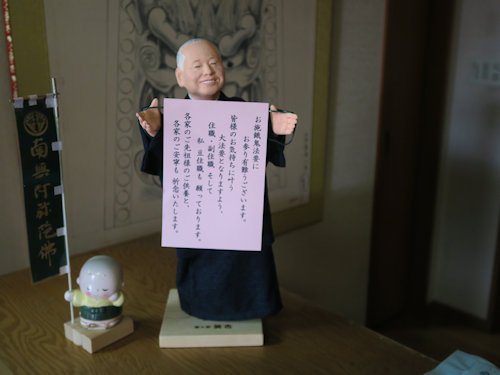 お施餓鬼法要に
お参り有難うございます。
皆様のお気持ちに叶う
大法要となりますよう、
住職・副住職、そして
私 豆住職も 願っております。
各家のご先祖様のご供養と、
各家のご安寧も 祈念いたします。
南無阿弥陀佛